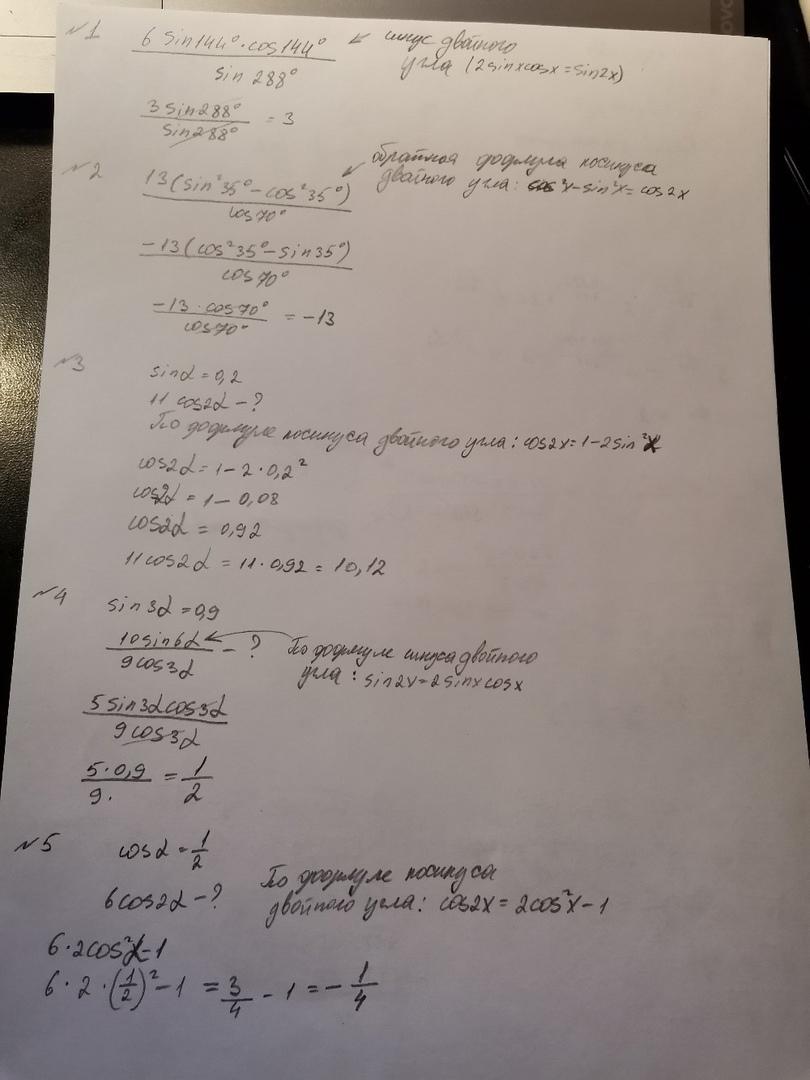 №1
6 sin144°·cos144° / sin 288° ← синус двойного
угла (2sinxcosx=sin2x)
3 sin288° / sin288° = 3
№2
13(sin²35°-cos²35°) / cos70° ← обратная формула косинуса
двойного угла: cos²x-sin²x=cos2x
-13(cos²35°-sin35°) / cos70°
-13·cos70° / cos70° = -13
№3
sinα=0,2
11 cos2α-?
По формуле косинуса двойного угла: cos2x=1-2sin²x
cos2α=1-2·0,2²
cos2α=1-0,08
cos2α=0,92
11cos2α=11·0,92=10,12
№4
sin3α=0,9
10sin6α / 9cos3α - ? По формуле синуса двойного
угла: sin2x=2sinxcosx
5sin3αcos3α / 9cos3α
5·0,9 / 9. = 1/2
№5
cosα=1/2
6cos2α-? По формуле косинуса
двойного угла: cos2x=2cos²x-1
6·2cos²x-1
6·2·(1/2)²-1=3/4-1=-1/4